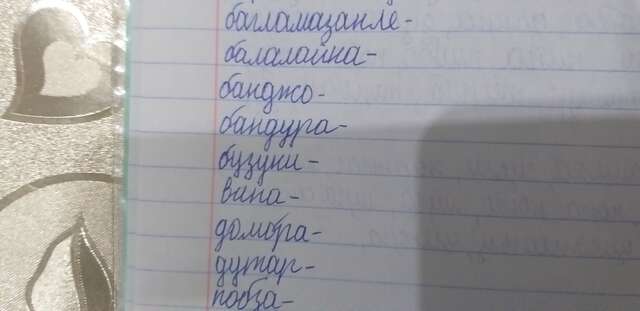 багламазанле-
балалайка-
банджо-
бандура-
бузуки-
вина-
домбра-
дутар-
кобза-